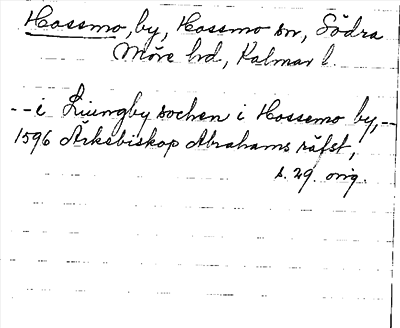 Hossmo, by, Hossmo sn, Södra
Möre hd, Kalmar l.
-- i Liungby sochen i Hossemo by, --
1596 Ärkebiskop Abrahams räfst,
s. 29. orig.